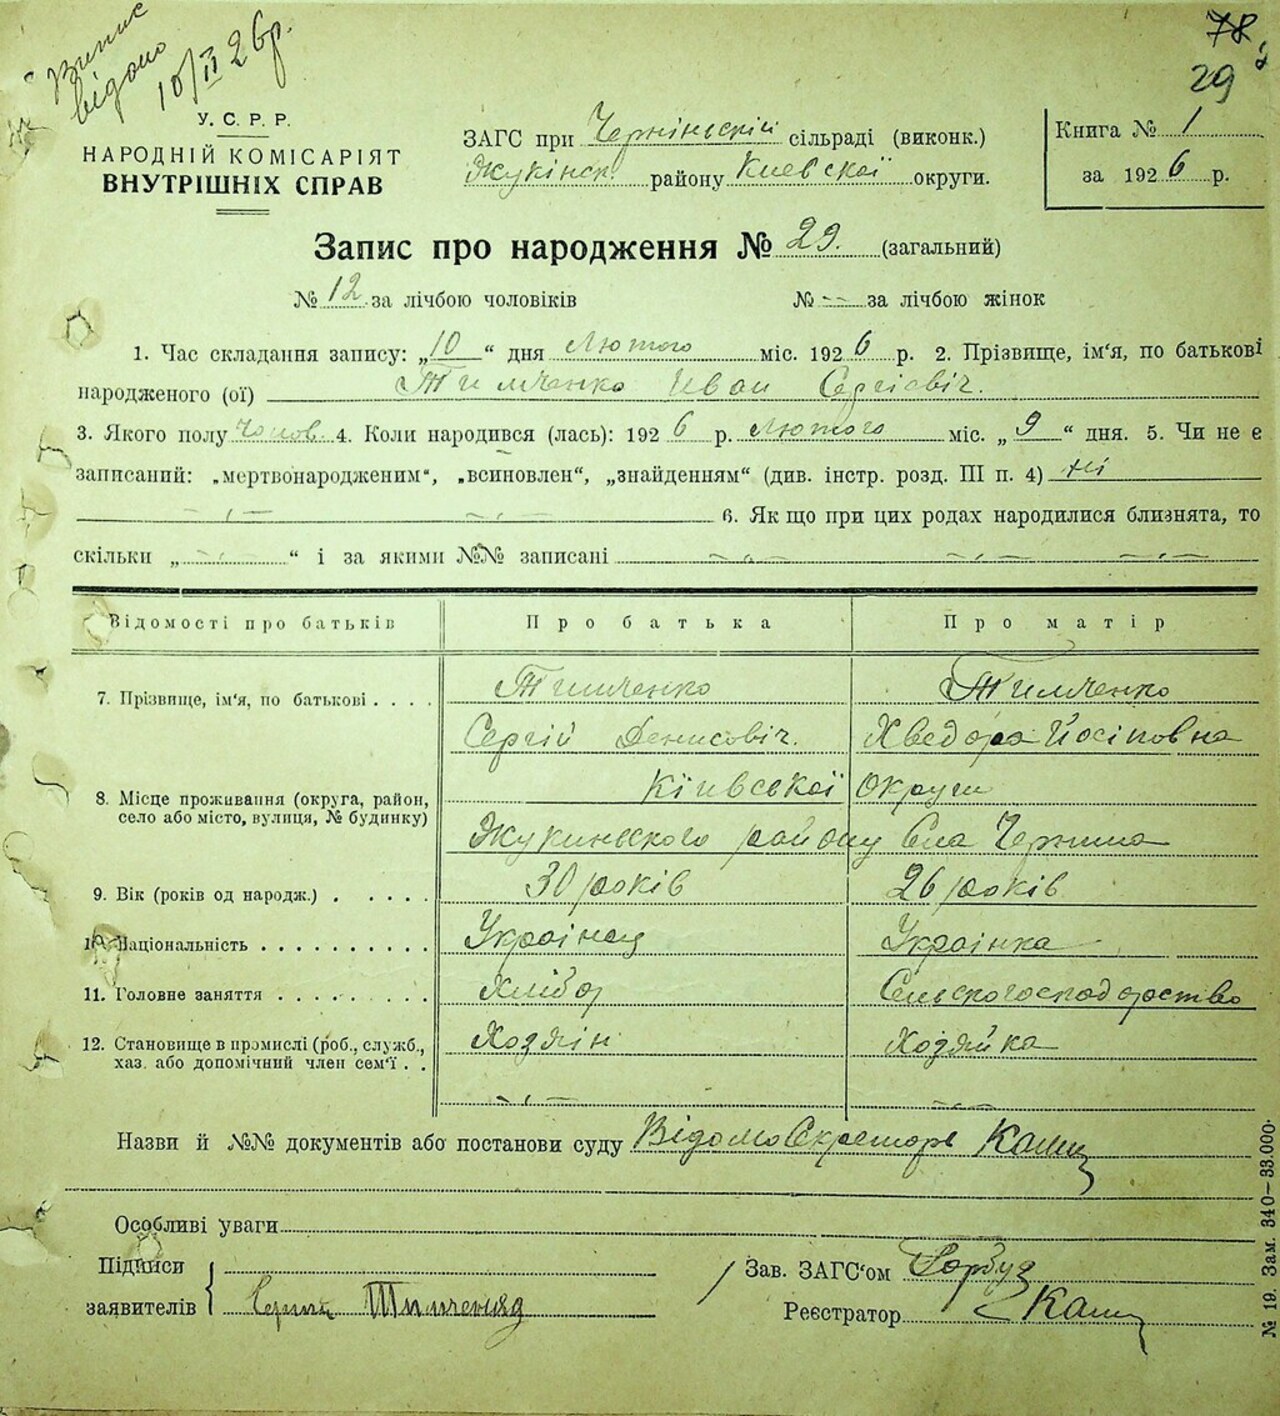 Випис
відано
10/II 26р.
78
29
У. С. Р. Р.
НАРОДНІЙ КОМІСАРІЯТ
ВНУТРІШНІХ СПРАВ
ЗАГС при Черніньскій сільраді (виконк.)
Жукінск. району Киевскої округи.
Книга № 1
за 1926 р.
Запис про народження № 29. (загальний)
№ 12 за лічбою чоловіків № -- за лічбою жінок
1. Час складання запису: „10“ дня Лютого міс. 1926 р. 2. Прізвище, ім‘я, по батькові
народженого (ої) Тимченко Иван Сергіевіч.
3. Якого полу Чолов. 4. Коли народився (лась): 1926 р. Лютого міс. „9“ дня. 5. Чи не є
записаний: „мертвонародженим“, „всиновлен“, „знайденням“ (див. інстр. розд. III п. 4) ні
6. Як що при цих родах народилися близнята, то
скільки „ “ і за якими №№ записані
Відомості про батьків Про батька Про матір
7. Прізвище, ім‘я, по батькові . . . . Тимченко Тимченко
Сергій Денисовіч. Хведора Йосіповна
8. Місце проживання (округа, район, Кіивської Округи
село або місто, вулиця, № будинку) Жукиньского району Села Чернина
9. Вік (років од народж.) . . . . . 30 років 26 років
10. Національність . . . . . . . . . . Украінец Украінка
11. Головне заняття . . . . . . . . Хлібор Сельскогосподарство
12. Становище в промислі (роб., служб., Хозяін Хозяйка
хаз. або допомічний член сем‘ї . .
Назви й №№ документів або постанови суду Відомо Секретарь
Особливі уваги
Підписи
заявителів Сергій Тимченко
Зав. ЗАГС‘ом Гарбуз
Реєстратор
№ 19. Зам. 340—33.000.